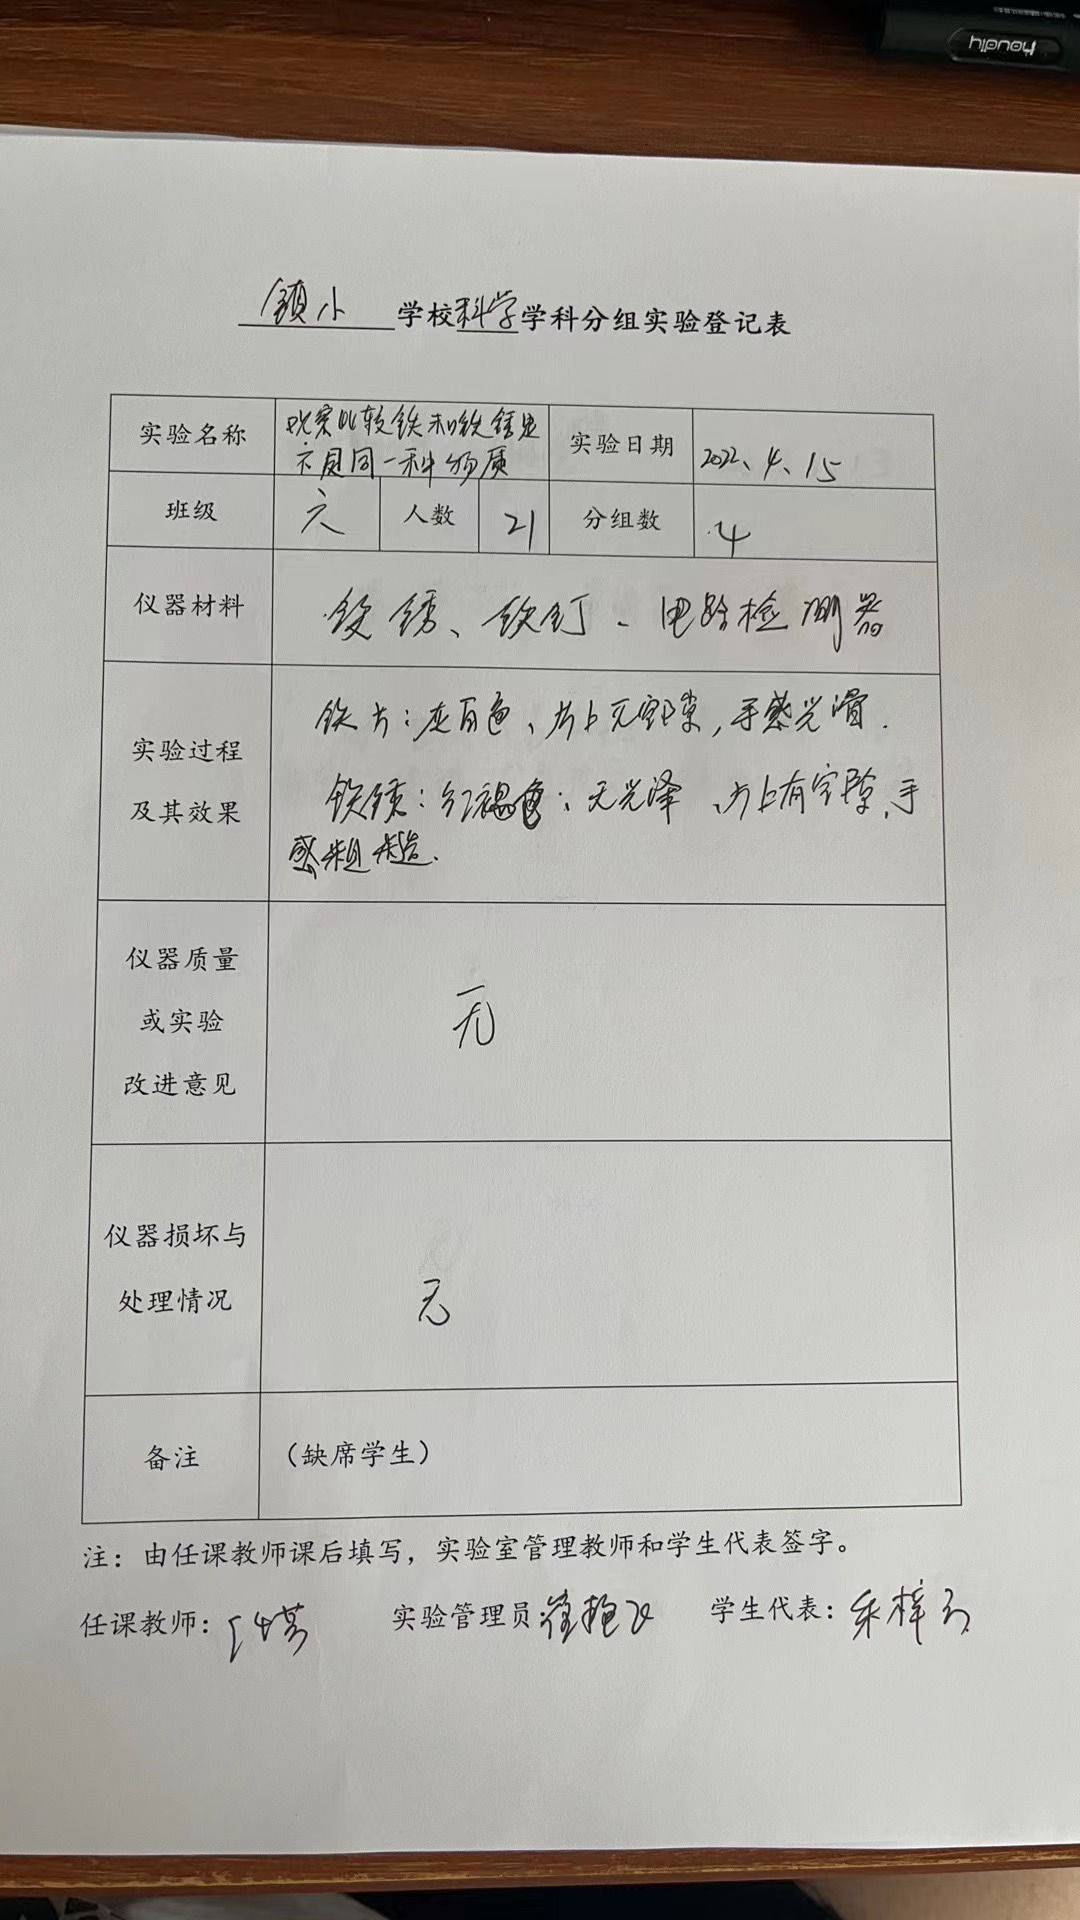 houdly
镇小 学校科学学科分组实验登记表
实验名称 观察比较铁和铁锈是
不是同一种物质 实验日期 2022、4、15
班级 六 人数 21 分组数 4
仪器材料 铁锈、铁钉、电路检测器
实验过程
及其效果
铁片：灰白色、片上无空隙，手感光滑.
铁锈：红褐色、无光泽、片上有空隙、手
感粗糙.
仪器质量
或实验
改进意见
无
仪器损坏与
处理情况
无
备注 （缺席学生）
注：由任课教师课后填写，实验室管理教师和学生代表签字。
任课教师： 实验管理员： 学生代表：